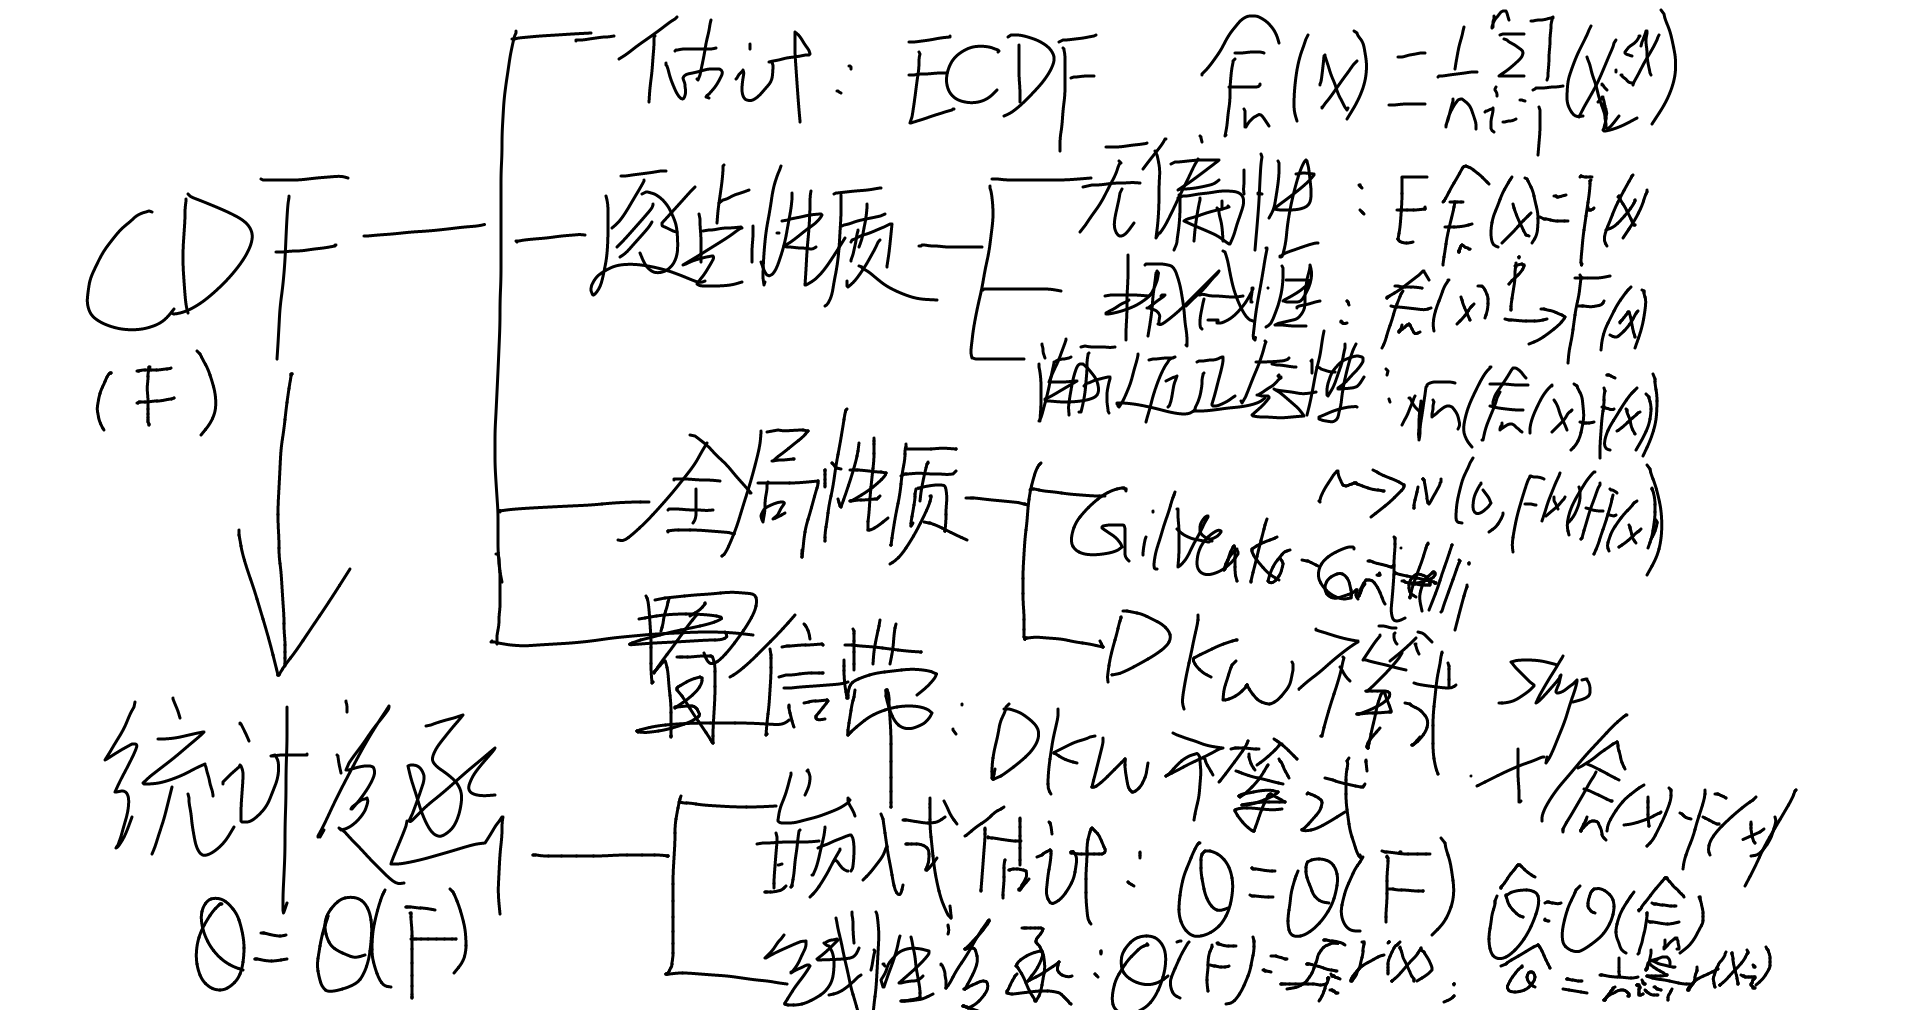 CDF
(F)
估计: ECDF F̂n(x) = 1/n Σ i=1 n I(Xi≤x)
逐点性质
无偏性: E F̂n(x) = F(x)
相合性: F̂n(x) P→ F(x)
渐近正态性: √n(F̂n(x)-F(x))
⇝ N(0, F(x)(1-F(x)))
全局性质
Glivenko-Cantelli
DKW不等式 sup x |F̂n(x)-F(x)|
置信带: DKW不等式
统计泛函
θ=θ(F)
嵌入式估计: θ=θ(F) θ̂=θ(F̂n)
线性泛函: θ(F)=E_F r(X); θ̂ = 1/n Σ i=1 n r(Xi)